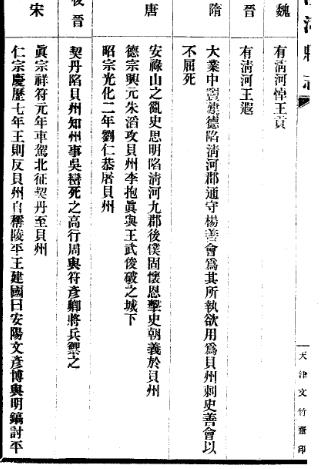 清河縣志
魏
有清河悼王貢
晉
有清河王遐
隋
大業中竇建德陷清河郡通守楊善會爲其所執欲用爲貝州刺史善會以
不屈死
唐
安祿山之亂史思明陷清河九郡後僕固懷恩擊史朝義於貝州
德宗興元朱滔攻貝州李抱眞與王武俊破之城下
昭宗光化二年劉仁恭屠貝州
後晉
契丹陷貝州知州事吳巒死之高行周與符彥卿將兵禦之
宋
眞宗祥符元年車駕北征契丹至貝州
仁宗慶歷七年王則反貝州自稱陵平王建國曰安陽文彥博與明鎬討平
天津文竹齋印